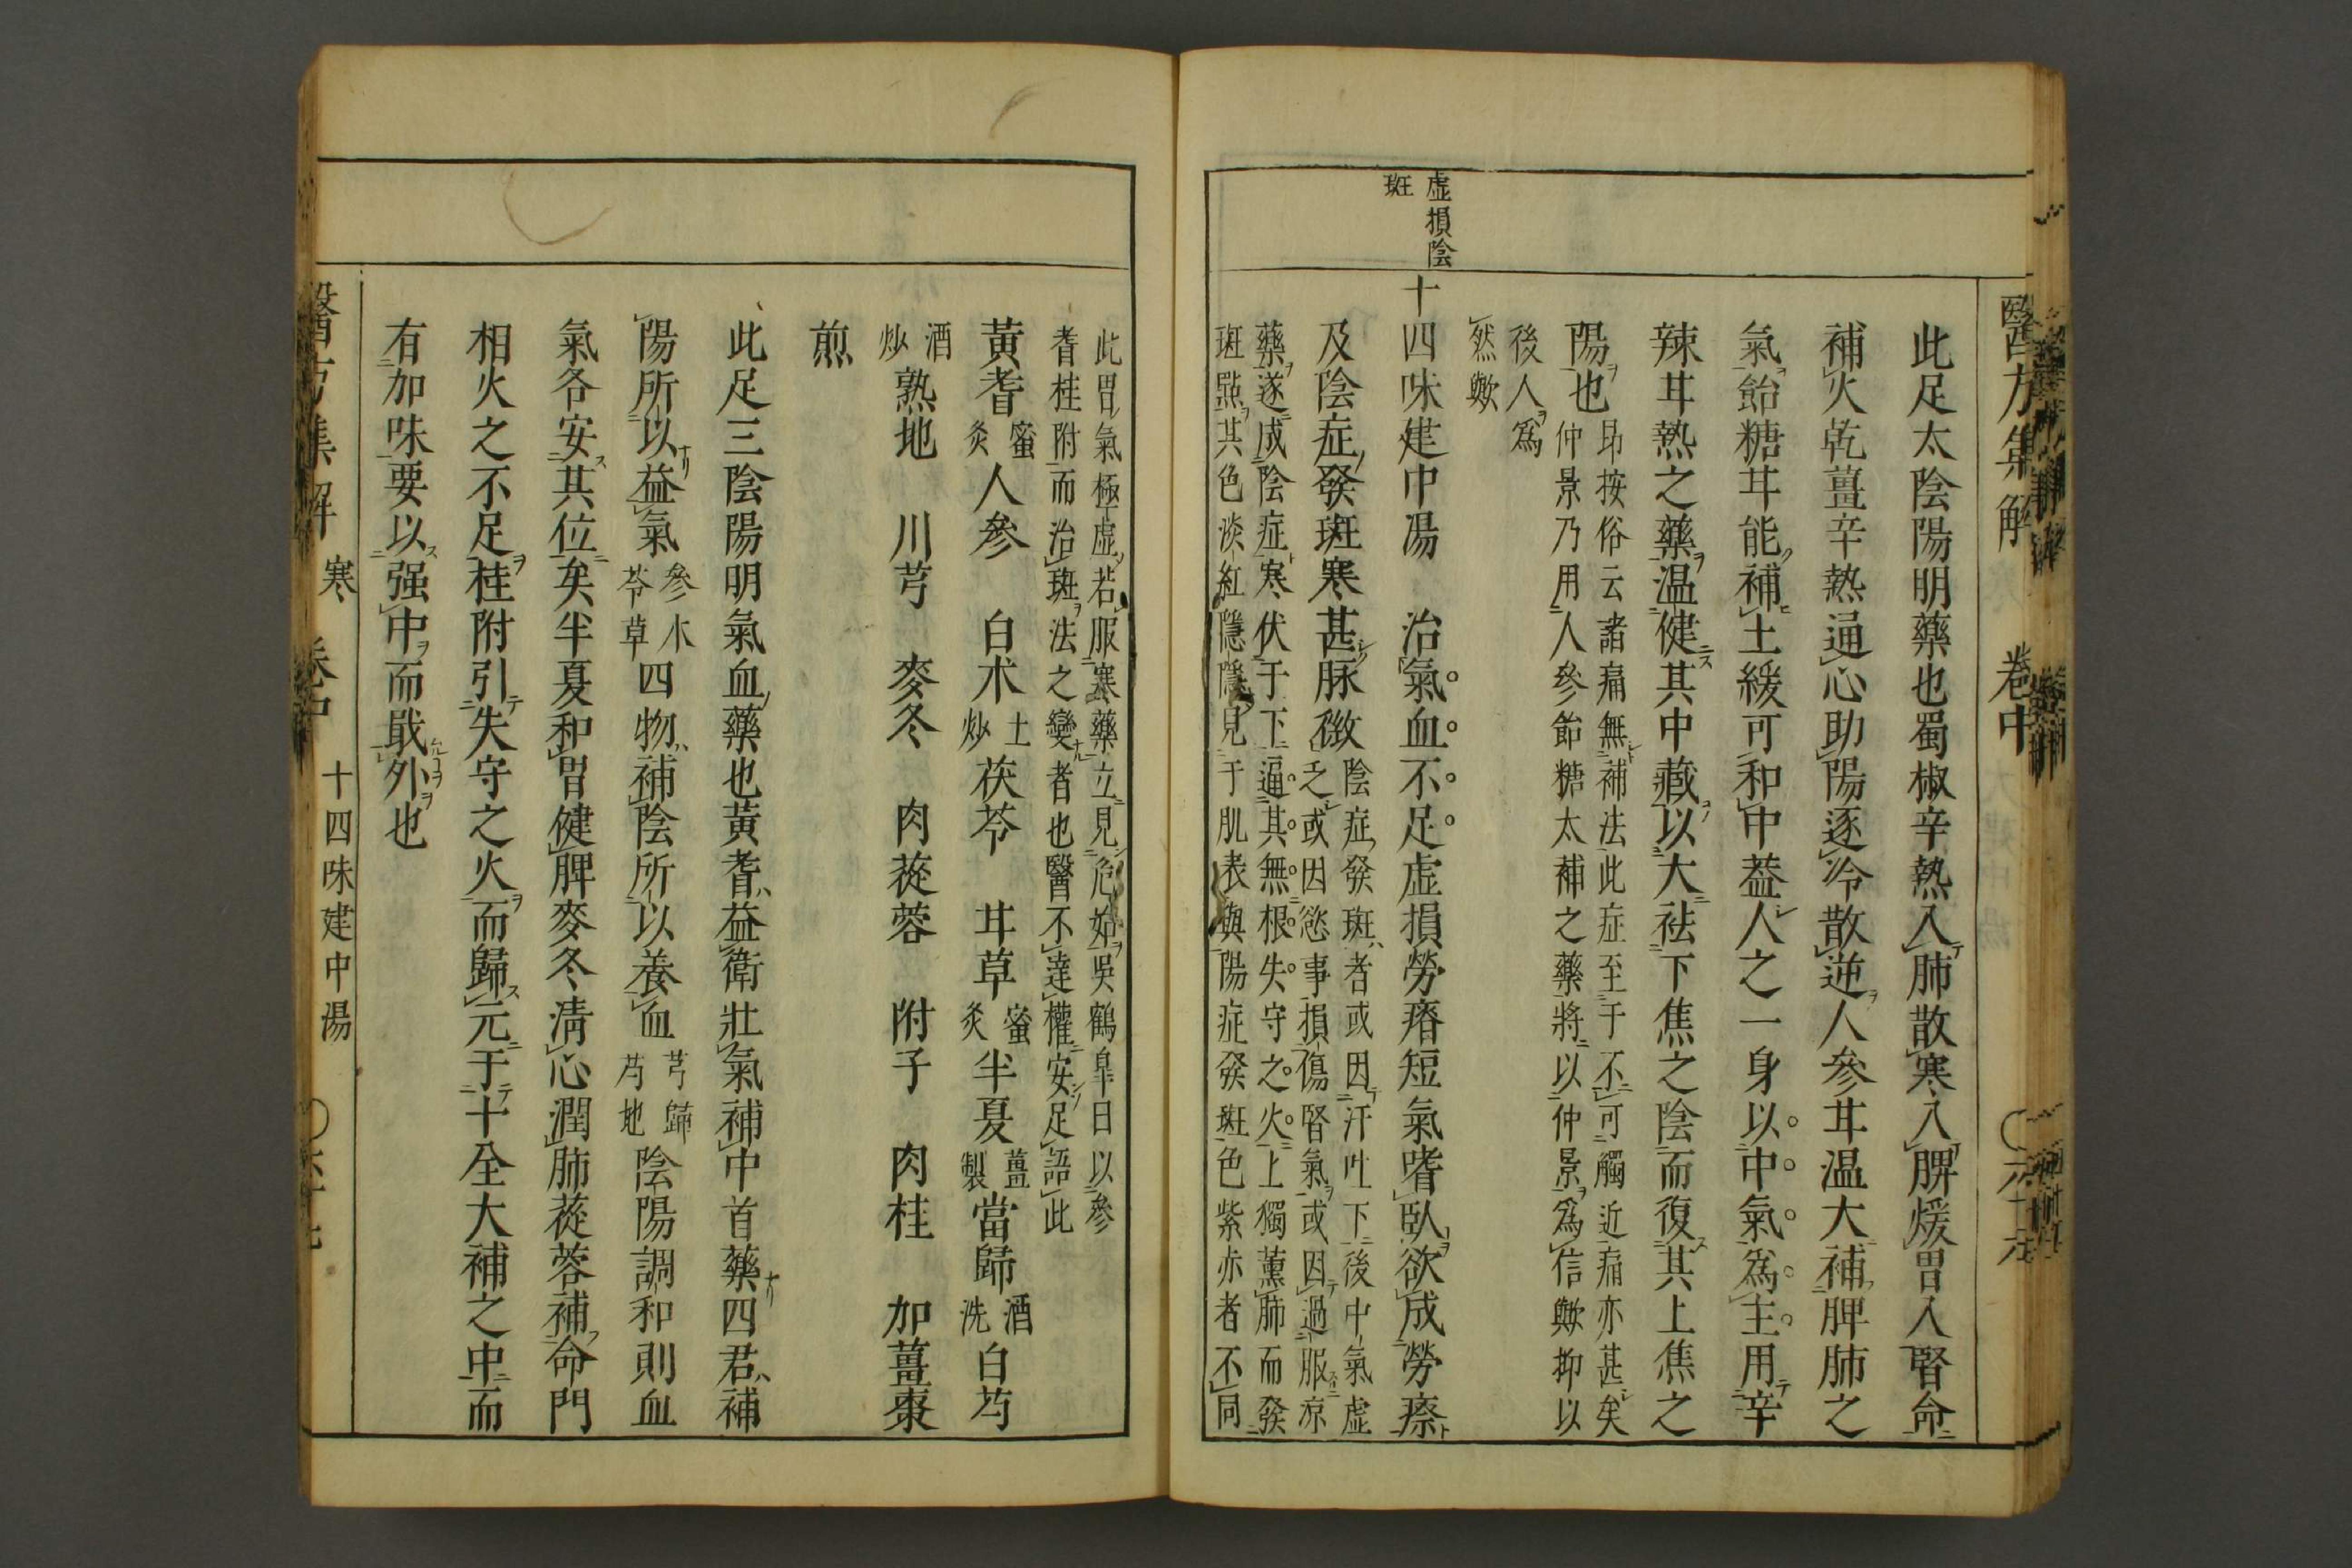 醫方集解　卷中
此足太陰陽明藥也蜀椒辛熱入肺散寒入脾煖胃入腎命
補火乾薑辛熱通心助陽逐冷散逆人參甘温大補脾肺之
氣飴糖甘能補土緩可和中葢人之一身以中氣爲主用辛
辣甘熱之藥温健其中藏以大袪下焦之陰而復其上焦之
陽也
昻按俗云諸痛無補法此症至于不可觸近痛亦甚矣
仲景乃用人參飴糖太補之藥將以仲景爲信歟抑以
後人爲
然歟
虚損陰
斑
十四味建中湯　治氣血不足虚損勞瘠短氣嗜臥欲成勞瘵
及陰症發斑寒甚脉微
陰症發斑者或因汗吐下後中氣虚
乏或因慾事損傷腎氣或因過服凉
藥遂成陰症寒伏于下逼其無根失守之火上獨薰肺而發
斑㸃其色淡紅隱隱見于肌表與陽症發斑色紫赤者不同
此胃氣極虚若服寒藥立見危殆吳鶴皐曰以參
耆桂附而治斑法之變者也醫不達權安足語此
黃耆蜜炙人參　白术土炒茯苓　甘草蜜炙半夏薑製當歸酒洗白芍
酒炒熟地　川芎　麥冬　肉蓯蓉　附子　肉桂　加薑棗
煎
此足三陰陽明氣血藥也黃耆益衛壯氣補中首藥四君補
陽所以益氣參术苓草四物補陰所以養血芎歸芍地陰陽調和則血
氣各安其位矣半夏和胃健脾麥冬淸心潤肺蓯蓉補命門
相火之不足桂附引失守之火而歸元于十全大補之中而
有加味要以强中而戢外也
醫方集解　寒　卷中　十四味建中湯